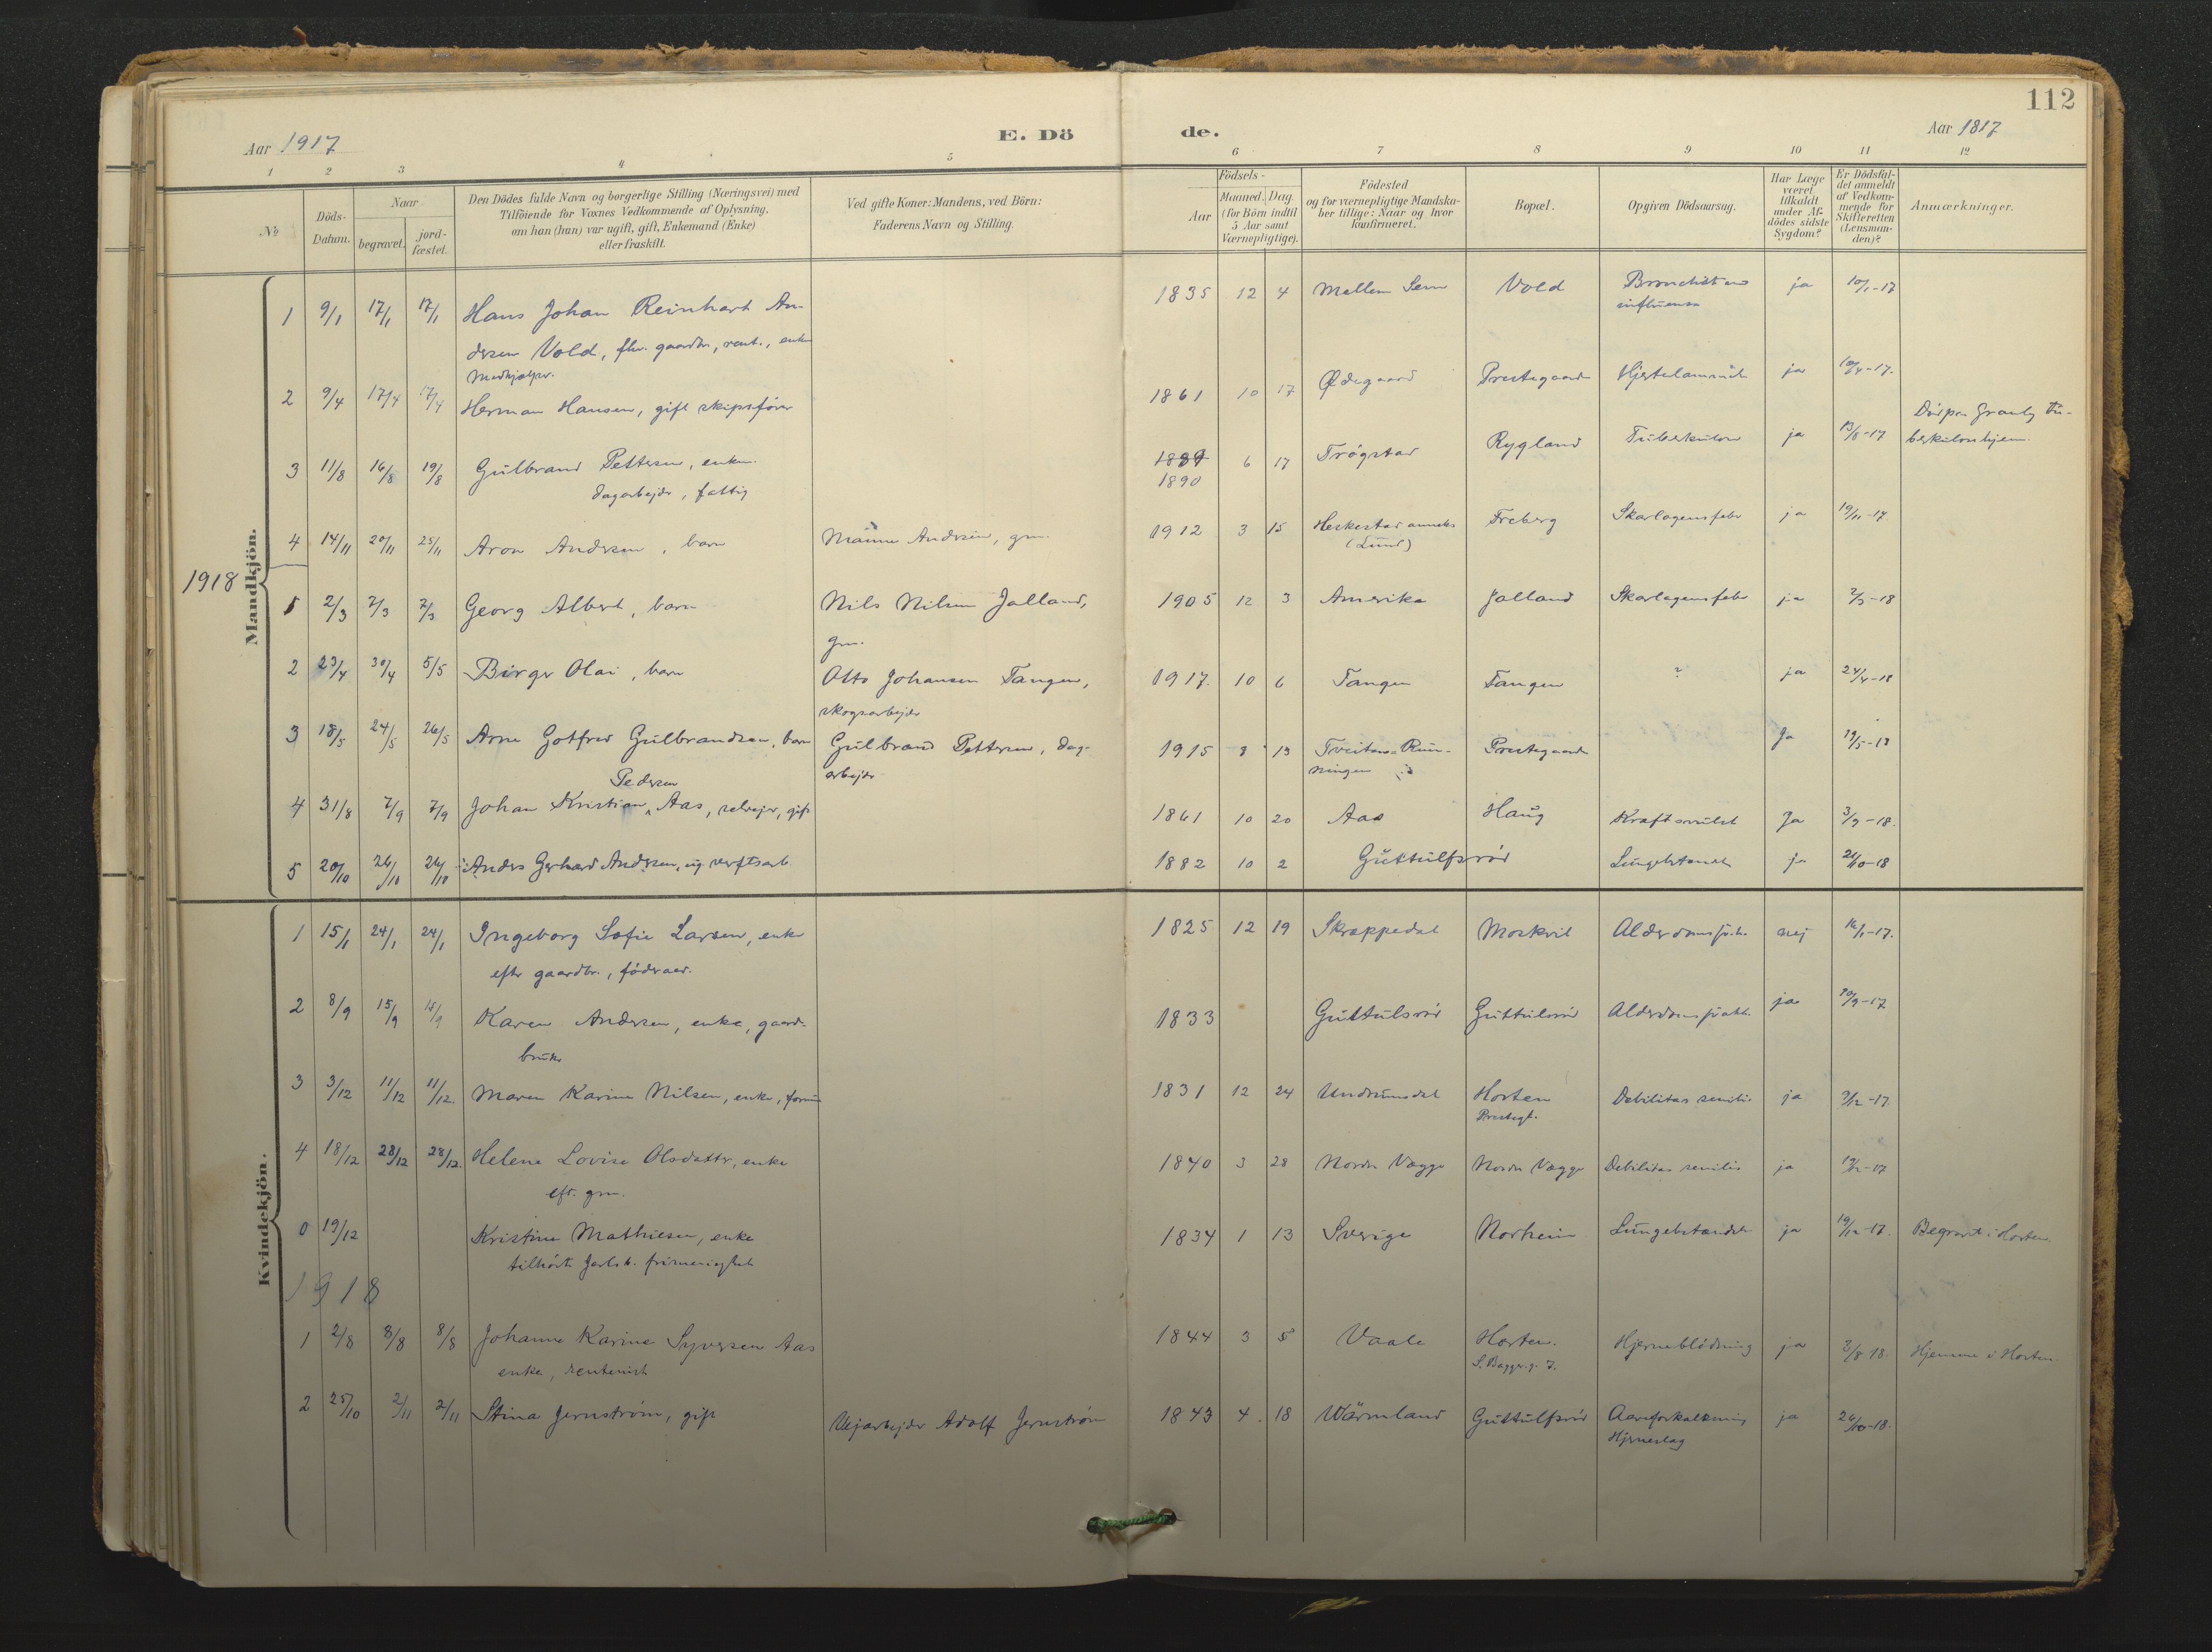 112
Aar 1917
E. Dö
de.
Aar 1817
1 2 3 4 5 6 7 8 9 10 11 12
No
Döds-Datum.
Naar
begravet.
jord-fæstet.
Den Dödes fulde Navn og borgerlige Stilling (Næringsvei) med
Tilföiende for Voxnes Vedkommende af Oplysning,
om han (hun) var ugift, gift, Enkemand (Enke)
eller fraskilt.
Ved gifte Koner: Mandens, ved Börn:
Faderens Navn og Stilling.
Födsels-
Aar
Maaned.
Dag.
(for Börn indtil
5 Aar samt
Værnepligtige).
Födested
og for værnepligtige Mandska-
ber tillige: Naar og hvor
konfirmeret.
Bopæl.
Opgiven Dödsaarsag.
Har Læge
været
tilkaldt
under Af-
dödes sidste
Sygdom?
Er Dödsfal-
det anmeldt
af Vedkom-
mende for
Skifteretten
(Lensman-
den)?
Anmærkninger.
Mandkjön.
1 9/1 17/1 17/1 Hans Johan Reinhart An- 1835 12 4 Mellem Sem Vold Bronchit influensa ja 10/1-17
dersen Vold, fhv. gaardbr., rent., enkem
Medhjælper.
2 9/4 17/4 17/4 Herman Hansen, gift skipsfører 1861 10 17 Ødegaard Prestegaarden ja 10/4-17.
3 11/8 16/8 19/8 Gulbrand Pettersen, enkem. 1889 6 17 Trøgstad Rygland Tuberkulose ja 13/8-17 Død paa Granly Tu-
dagarbejder, fattig 1890 berkulosehjem.
4 14/11 20/11 25/11 Aron Andersen, barn Andersen, gm. 1912 3 15 Heskestad anneks Freberg Skarlagensfeber ja 19/11-17
(Lund)
1918
1 2/3 7/3 7/3 Georg Albert, barn Nils Nilsen Jalland, 1905 12 3 Amerika Jalland Skarlagensfeber ja 2/3-18
gm.
2 23/4 30/4 5/5 Birger Olai, barn Otto Johansen Tangen, 1917. 10 6 Tangen Tangen ? ja 24/4-18
skogsarbejder
3 18/5 24/5 26/5 Arne Gotfred Gulbrandsen, barn Gulbrand Pettersen, dag- 1915 8 13 Tveiten-Run- Prestegaarden Ja 19/5-18
arbejder ningen
Pedersen
4 31/8 7/9 7/9 Johan Kristian Aas, selvejer, gift 1861 10 20 Aas Haug Kraftsvulst Ja 3/9-18.
5 20/10 26/10 26/10 Anders Gerhard Andersen, ug verftsarb 1882 10 2 Guttulfsrød Lungebetændelse ja 21/10-18
Kvindekjön.
1 15/1 24/1 24/1 Ingeborg Sofie Larsen, enke 1825 12 19 Skrappedal Moskvil nej 16/1-17.
efter gaardbr., føderaad.
2 8/9 15/9 15/9 Karen Andersen, enke, gaard- 1833 Guttulsrød Guttulsrød ja 10/9-17
bruker
3 3/12 11/12 11/12 Maren Karine Nilsen, enke, 1831 12 24 Undrumsdal Horten Debilitas senilis ja 3/12-17
Prestegt.
4 18/12 28/12 28/12 Helene Lovise Olsdatter, enke 1840 3 28 Nordre Vegge Nordre Vegge Debilitas senilis ja 19/12-17
eft. gm.
0 19/12 Kristine Mathiesen, enke 1834 1 13 Sverige Norheim Lungebetændelse ja 19/12-17. Begravet i Horten.
tilhørte Jarlsb. frimenighet
1918
1 2/8 8/8 8/8 Johanne Karine Syversen Aas 1844 3 5 Vaale Horten. Hjerneblødning ja 3/8 18. Hjemme i Horten.
enke, rentenist
2 25/10 2/11 2/11 Stina Jernstrøm, gift Vejarbejder Adolf Jernstrøm 1843 4. 18 Wärmland Guttulfsrød Aareforkalkning ja 26/10-18.
Hjerneslag